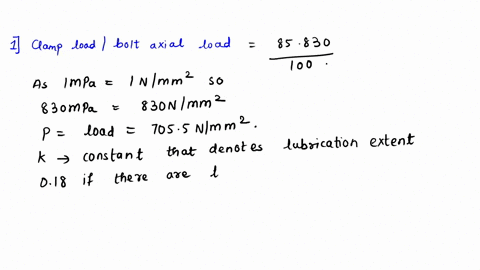 1] Clamp load / bolt axial load = 85.830 / 100.
As 1mPa = 1N/mm² so
830mPa = 830N/mm²
P = load = 705.5 N/mm².
K → constant that denotes lubrication extent
0.18 if there are l